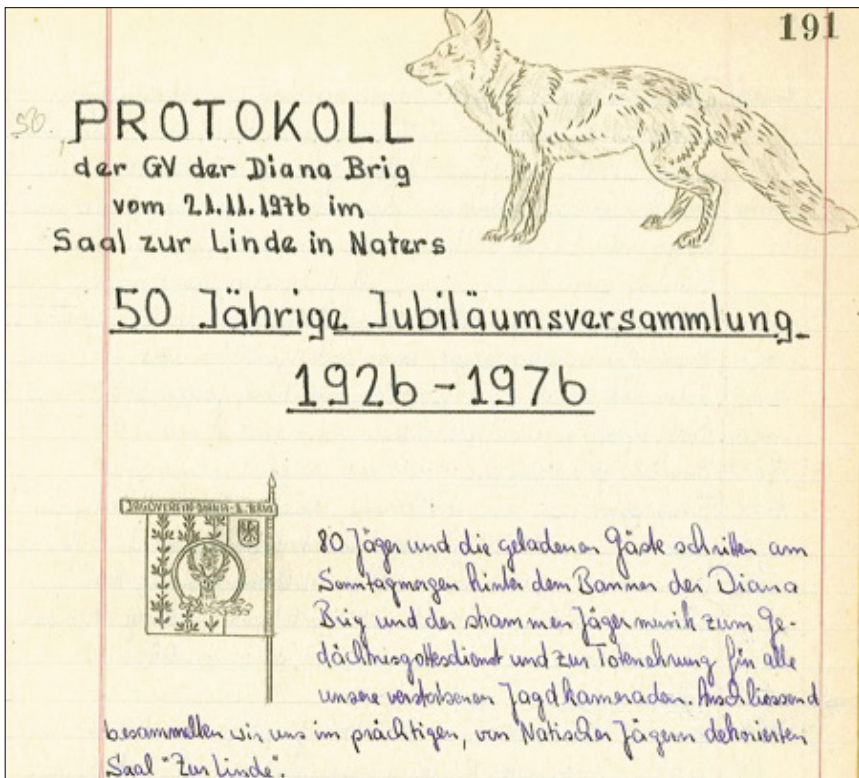 191
50.
PROTOKOLL
der GV der Diana Brig
vom 21.11.1976 im
Saal zur Linde in Naters
50 Jährige Jubiläumsversammlung
1926-1976
JAGDVEREIN DIANA
80 Jäger und die geladenen Gäste schritten am
Sonntagmorgen hinter dem Banner der Diana
Brig und der strammen Jägermusik zum Ge-
dächtnisgottesdienst und zur Totenehrung für alle
unsere verstorbenen Jagdkameraden. Anschliessend
besammelten wir uns im prächtigen, von Natischer Jägern dekorierten
Saal "Zur Linde".